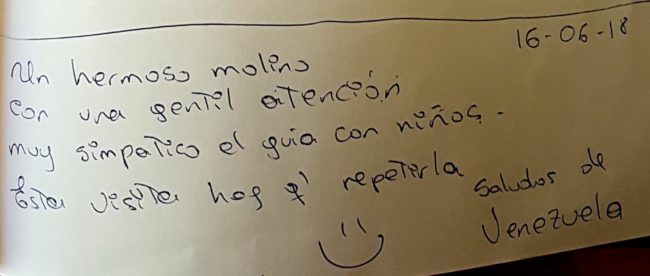 16-06-18
Un hermoso molino
con una gentil atención
muy simpatico el guia con niños.
Esta visita hay q' repetirla
Saludos de
Venezuela